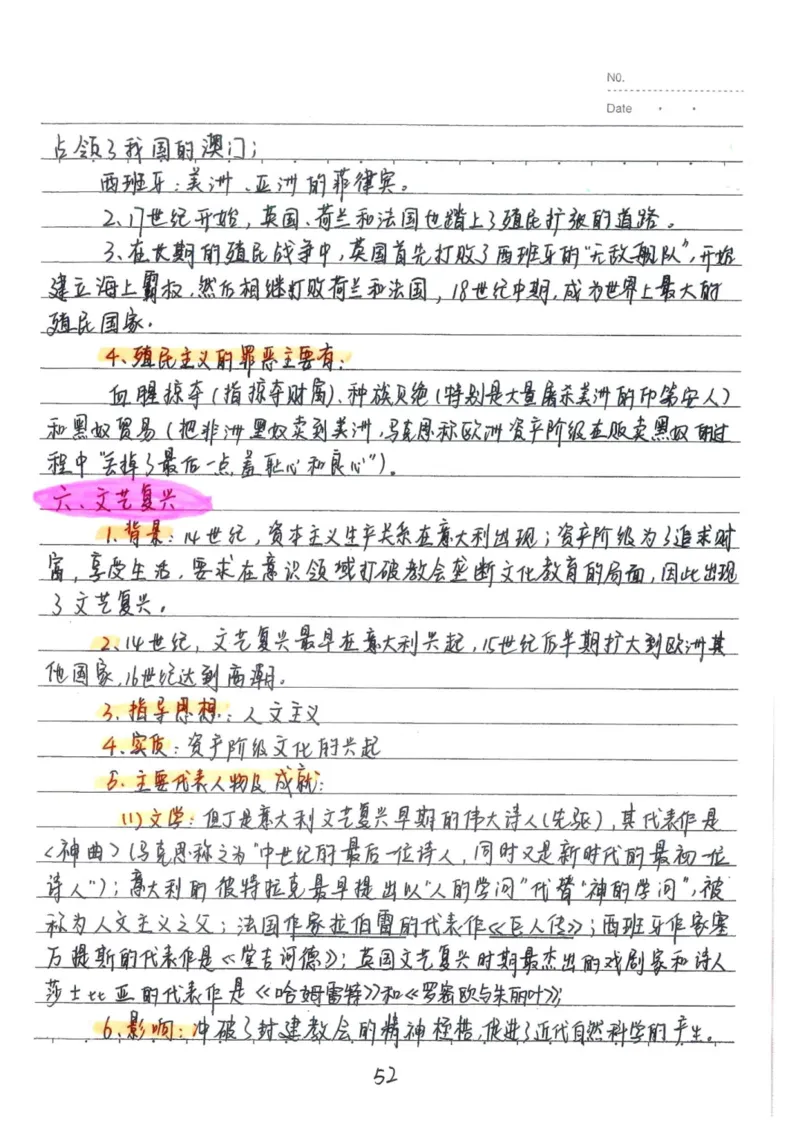 No.
Date
占领了我国的澳门；
西班牙：美洲、亚洲的菲律宾。
2、17世纪开始，英国、荷兰和法国也踏上了殖民扩张的道路。
3、在长期的殖民战争中，英国首先打败了西班牙的“无敌舰队”，开始
建立海上霸权，然后相继打败荷兰和法国，18世纪中期，成为世界上最大的
殖民国家。
4、殖民主义的罪恶主要有：
血腥掠夺（指掠夺财富）、种族灭绝（特别是大量屠杀美洲的印第安人）
和黑奴贸易（把非洲黑奴卖到美洲，马克思称欧洲资产阶级在贩卖黑奴的过
程中“丢掉了最后一点羞耻心和良心”）。
六、文艺复兴
1、背景：14世纪，资本主义生产关系在意大利出现；资产阶级为了追求财
富，享受生活，要求在意识领域打破教会垄断文化教育的局面，因此出现
了文艺复兴。
2、14世纪，文艺复兴最早在意大利兴起，15世纪后半期扩大到欧洲其
他国家，16世纪达到高潮。
3、指导思想：人文主义
4、实质：资产阶级文化的兴起
5、主要代表人物及成就：
(1)文学：但丁是意大利文艺复兴早期的伟大诗人（先驱），其代表作是
《神曲》（马克思称之为“中世纪的最后一位诗人，同时又是新时代的最初一位
诗人”）；意大利的彼特拉克最早提出以“人的学问”代替“神的学问”，被
称为人文主义之父；法国作家拉伯雷的代表作《巨人传》；西班牙作家塞
万提斯的代表作是《堂吉诃德》；英国文艺复兴时期最杰出的戏剧家和诗人
莎士比亚的代表作是《哈姆雷特》和《罗密欧与朱丽叶》；
6、影响：冲破了封建教会的精神桎梏，促进了近代自然科学的产生。
52